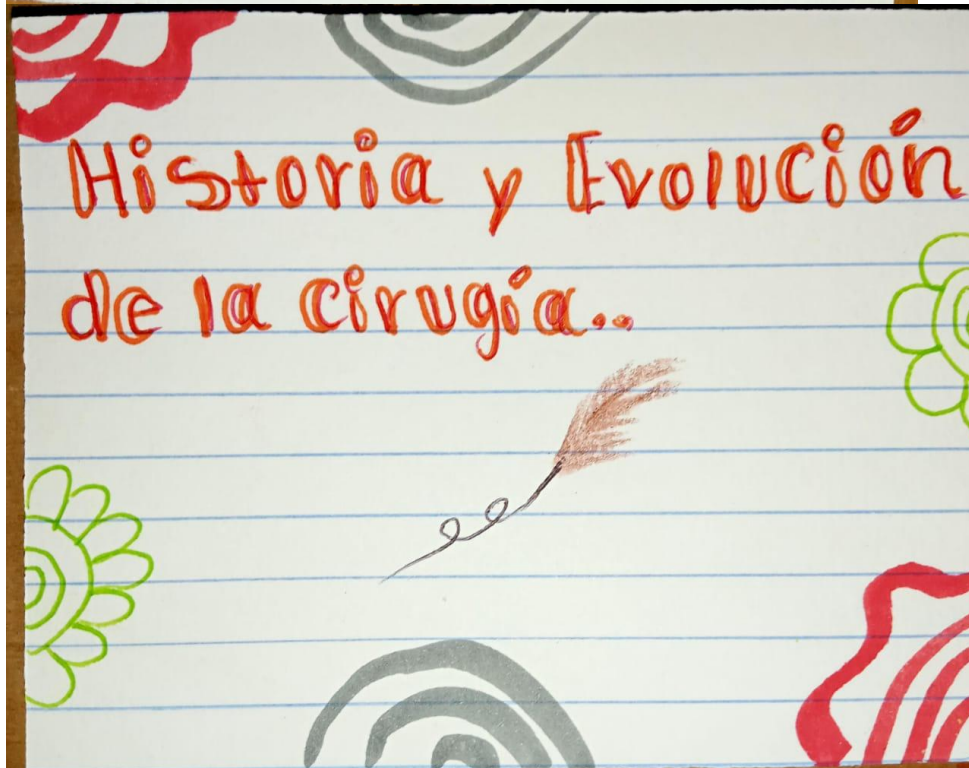 Historia y Evolución
de la cirugía..